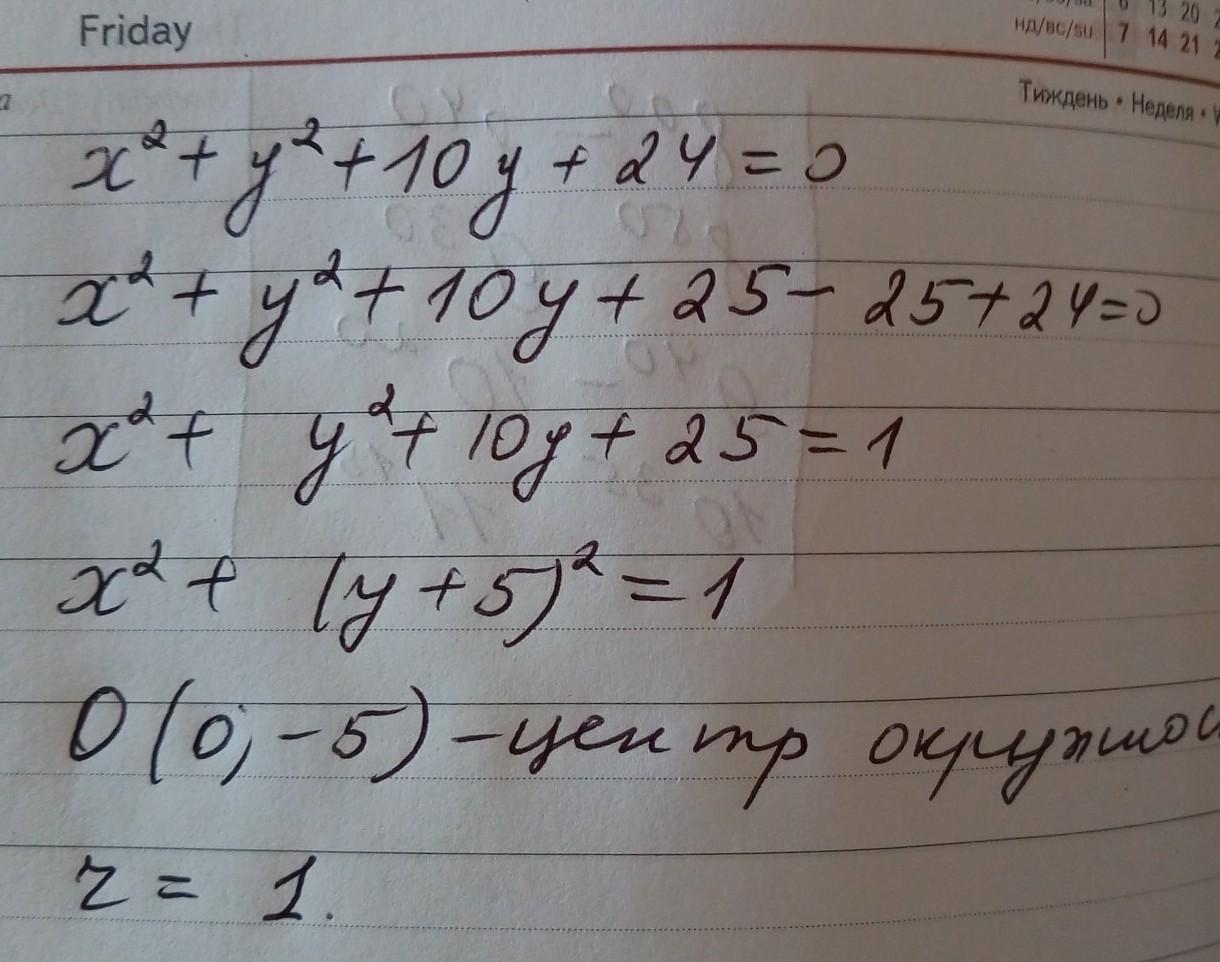 Friday
6 13 20
НД/ВС/SU 7 14 21
Тиждень • Неделя •
x² + y² + 10y + 24 = 0
x² + y² + 10y + 25 - 25 + 24 = 0
x² + y² + 10y + 25 = 1
x² + (y + 5)² = 1
O (0, -5) - центр окружнос
r = 1.